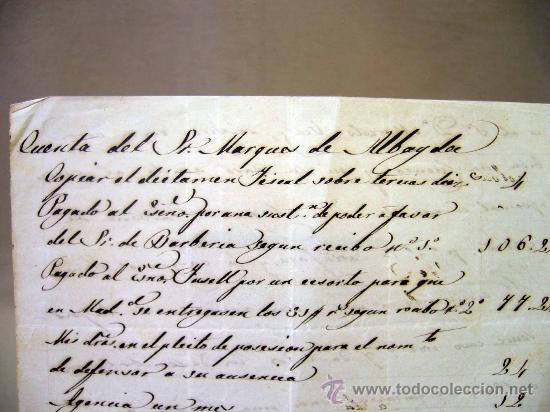 Cuenta del Sr. Marques de Albayda
Copiar el dictamen Fiscal sobre tercias 4
Pagado al Esno. por una sustn. de poder a favor
del Sr. de Barberia segun recibo nº 1º 106.2
Pagado al Esno. Tusell por un para que
en Mad. se entreguen los rs segun recibo nº 2º 77.2
Mis dros. en el pleito de posesion para el nomto.
de defensor a su ausencia 24
Agencia un mes 32
todocoleccion
www.todocoleccion.net